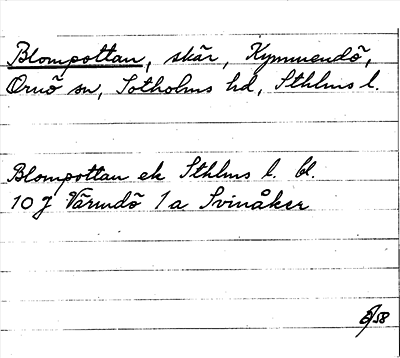 Blompottan, skär, Kymmendö,
Ornö sn, Sotholms hd, Sthlms l.
Blompottan ek Sthlms l. bl.
10 J Värmdö 1 a Svinåker
58